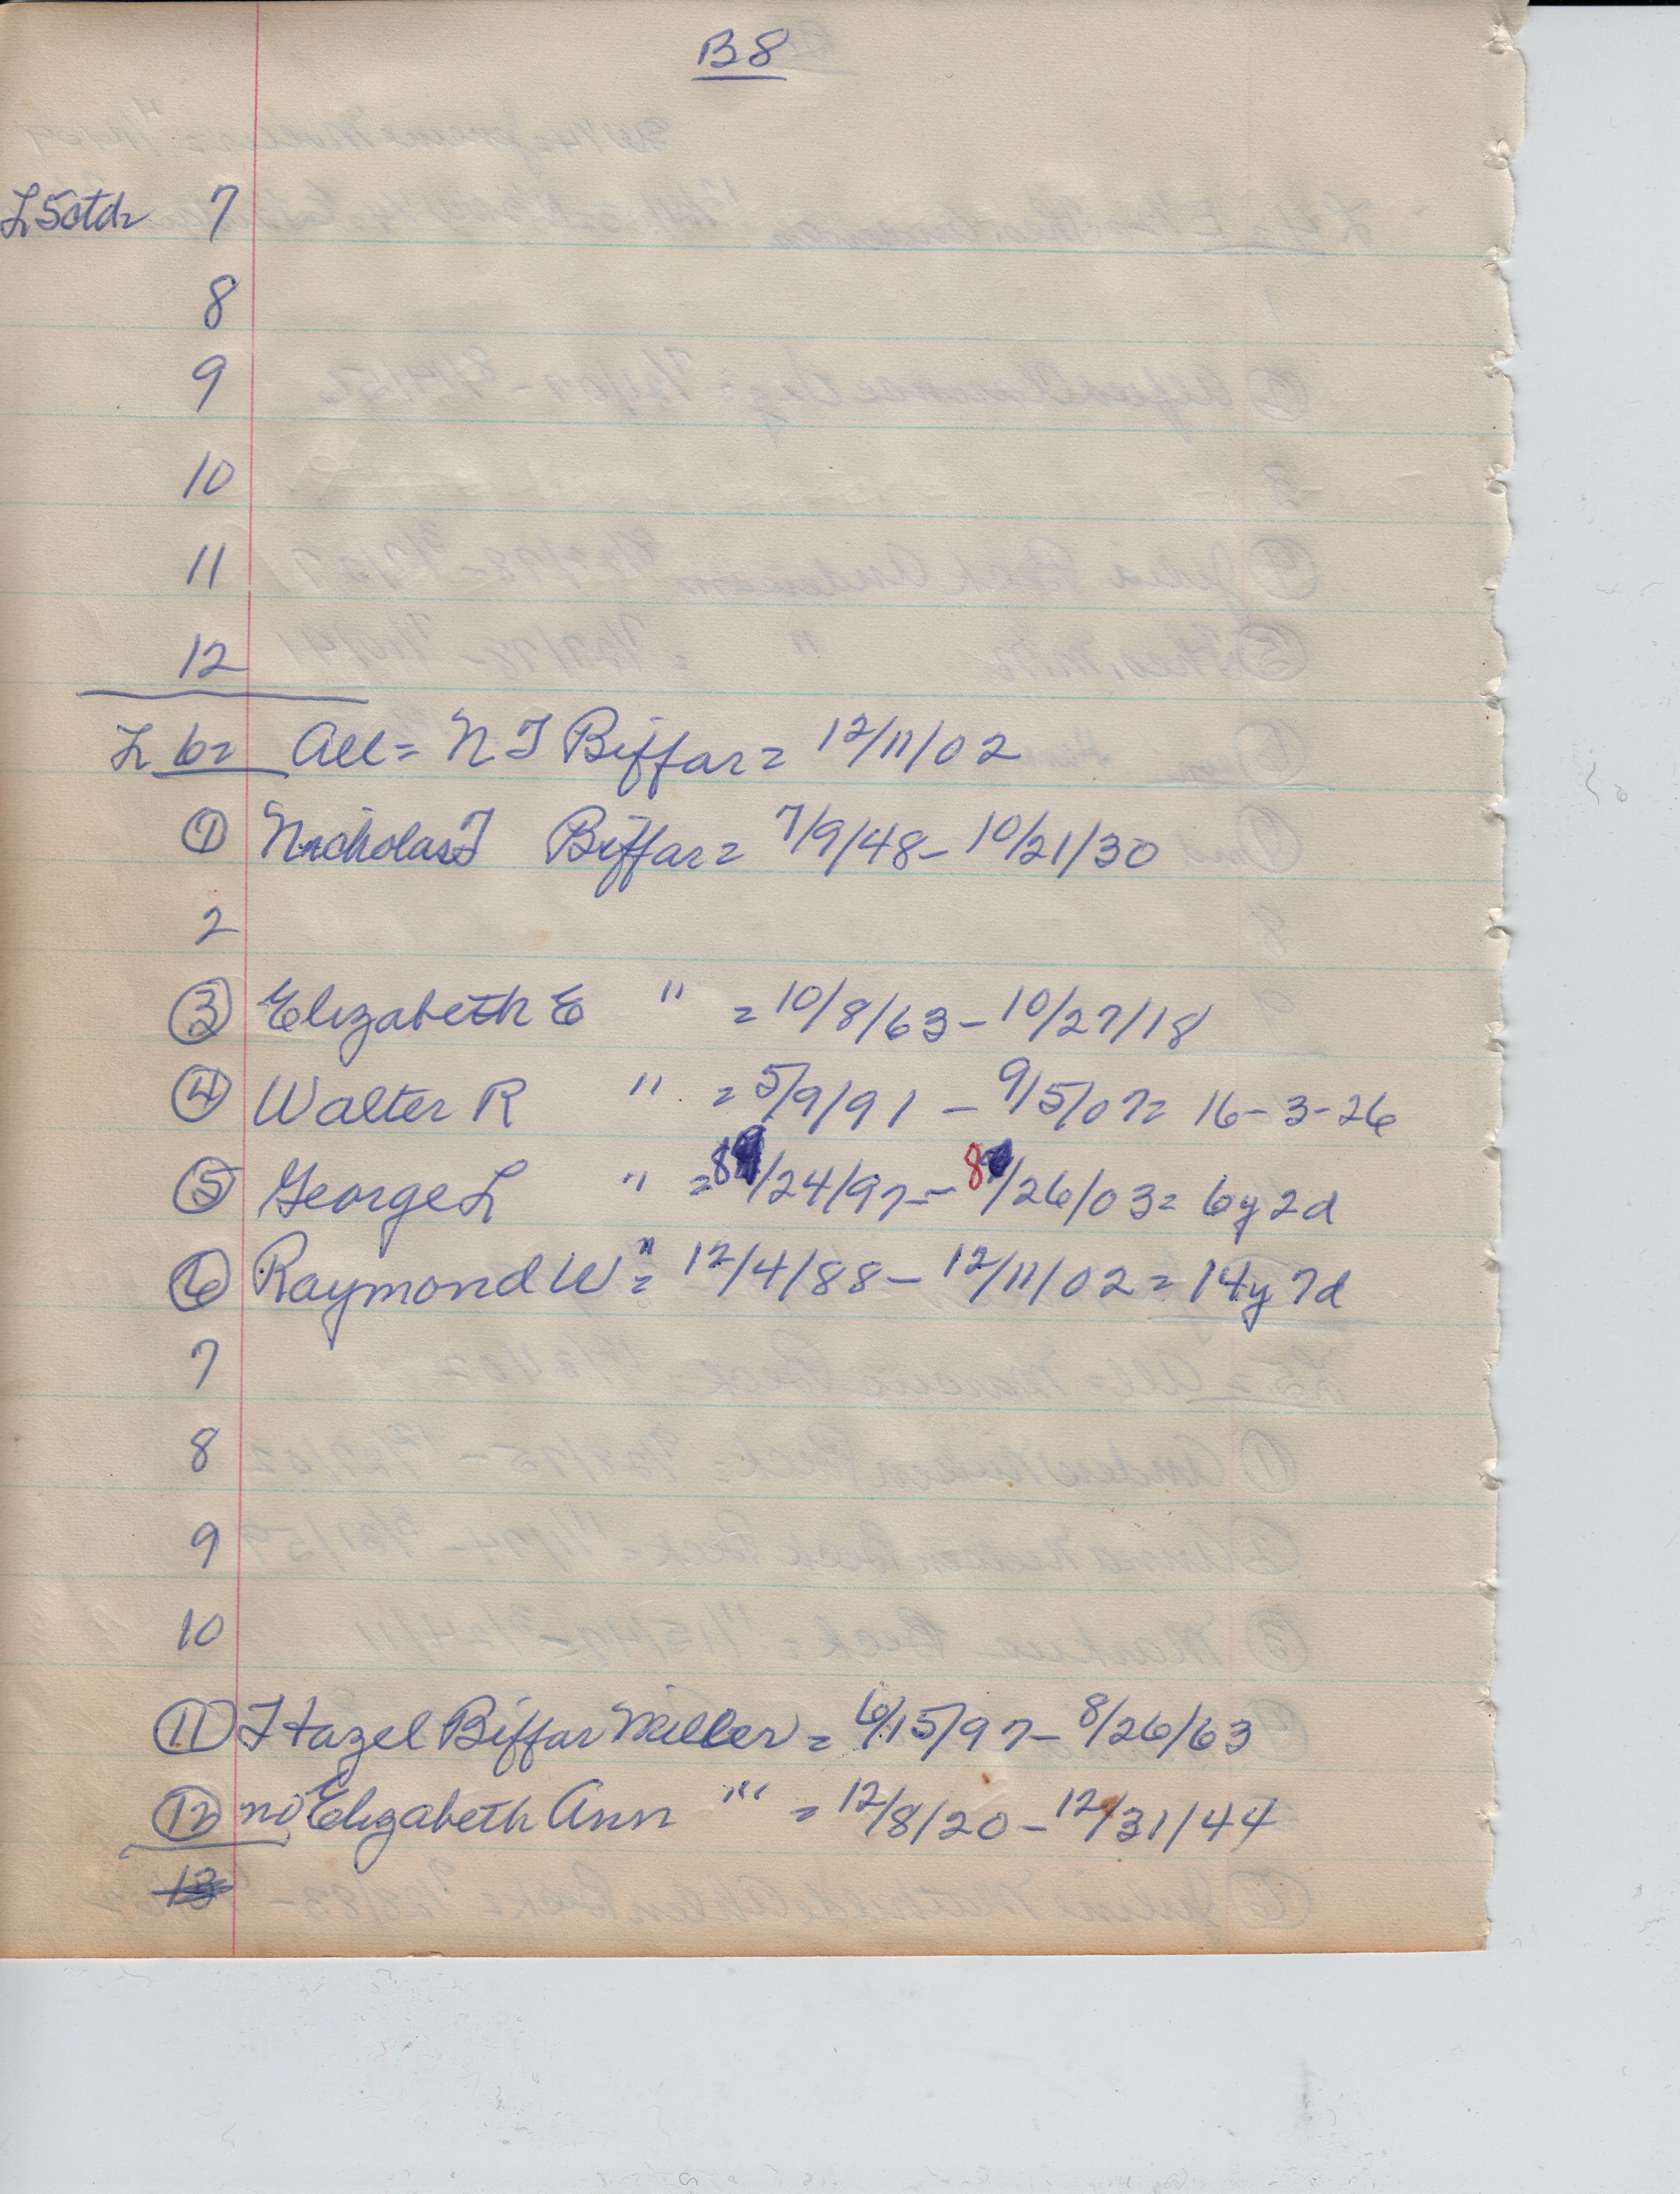 B8
L5ctd= 7
8
9
10
11
12
L 6= All= N J Biffar= 12/11/02
① Nicholas J Biffar= 7/9/48- 10/21/30
2
③ Elizabeth E " = 10/8/63- 10/27/18
④ Walter R " = 5/9/91 - 9/5/07= 16-3-26
⑤ George L " = 8/24/97- 8/26/03= 6y 2d
⑥ Raymond W " = 12/4/88- 12/11/02= 14y 7d
7
8
9
10
⑪ Hazel Biffar Miller= 6/15/97- 8/26/63
⑫ no Elizabeth Ann "" = 12/8/20- 12/31/44
13